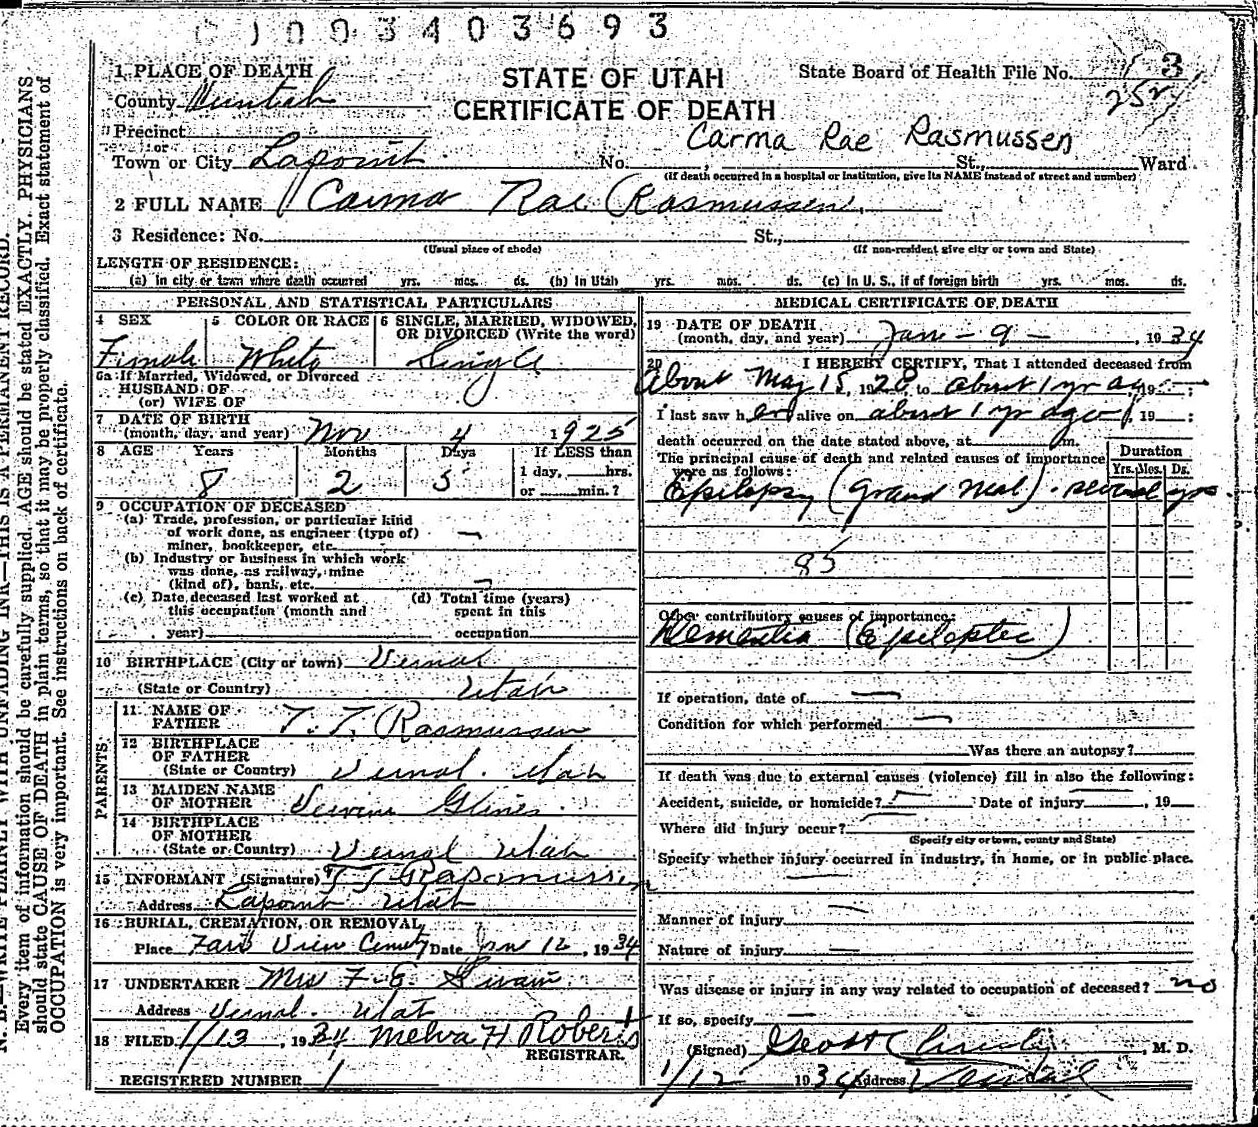 003403693
1 PLACE OF DEATH
STATE OF UTAH
CERTIFICATE OF DEATH
State Board of Health File No. 3
County Uintah
Precinct
or
Town or City Lapoint No. St., Ward
Carma Rae Rasmussen
(If death occurred in a hospital or institution, give its NAME instead of street and number)
2 FULL NAME Carma Rae Rasmussen
3 Residence: No. St.,
(Usual place of abode) (If non-resident give city or town and State)
LENGTH OF RESIDENCE:
(a) in city or town where death occurred yrs. mos. ds. (b) In Utah yrs. mos. ds. (c) In U. S., if of foreign birth yrs. mos. ds.
PERSONAL AND STATISTICAL PARTICULARS
4 SEX 5 COLOR OR RACE 6 SINGLE, MARRIED, WIDOWED, OR DIVORCED (Write the word)
Female White Single
6a If Married, Widowed, or Divorced
HUSBAND OF
(or) WIFE OF
7 DATE OF BIRTH
(month, day, and year) Nov 4 1925
8 AGE Years Months Days If LESS than
8 2 5 1 day, hrs.
or min.?
9 OCCUPATION OF DECEASED
(a) Trade, profession, or particular kind
of work done, as engineer (type of)
miner, bookkeeper, etc. —
(b) Industry or business in which work
was done, as railway, mine
(kind of), bank, etc. —
(c) Date deceased last worked at (d) Total time (years)
this occupation (month and spent in this
year) occupation
10 BIRTHPLACE (City or town) Vernal
(State or Country) Utah
PARENTS
11 NAME OF
FATHER T. T. Rasmussen
12 BIRTHPLACE
OF FATHER
(State or Country) Vernal. Utah
13 MAIDEN NAME
OF MOTHER Glines.
14 BIRTHPLACE
OF MOTHER
(State or Country) Vernal Utah
15 INFORMANT (Signature) T T Rasmussen
Address Lapoint Utah
16 BURIAL, CREMATION, OR REMOVAL
Place Fair View Cemetery Date Jan 12, 1934
17 UNDERTAKER Mrs F. E. Swain
Address Vernal. Utah
18 FILED 1/13, 1934 Melva H Roberts
REGISTRAR.
REGISTERED NUMBER 1
MEDICAL CERTIFICATE OF DEATH
19 DATE OF DEATH
(month, day, and year) Jan - 9 -, 1934
20 I HEREBY CERTIFY, That I attended deceased from
About May 15, 1926 to about 1 yr ago, 19— 
I last saw her alive on about 1 yr ago, 19—:
death occurred on the date stated above, at m.
The principal cause of death and related causes of importance
were as follows:
Duration
Yrs. Mos. Ds.
Epilepsy (Grand Mal). several yrs.
85
Other contributory causes of importance:
Dementia (Epileptic)
If operation, date of —
Condition for which performed —
Was there an autopsy?
If death was due to external causes (violence) fill in also the following:
Accident, suicide, or homicide? — Date of injury —, 19
Where did injury occur? —
(Specify city or town, county and State)
Specify whether injury occurred in industry, in home, or in public place.
—
Manner of injury —
Nature of injury —
Was disease or injury in any way related to occupation of deceased? no
If so, specify —
(Signed) M. D.
1/12 1934 Address Vernal
N. B.—WRITE PLAINLY WITH UNFADING INK—THIS IS A PERMANENT RECORD.
Every item of information should be carefully supplied. AGE should be stated EXACTLY. PHYSICIANS
should state CAUSE OF DEATH in plain terms, so that it may be properly classified. Exact statement of
OCCUPATION is very important. See instructions on back of certificate.